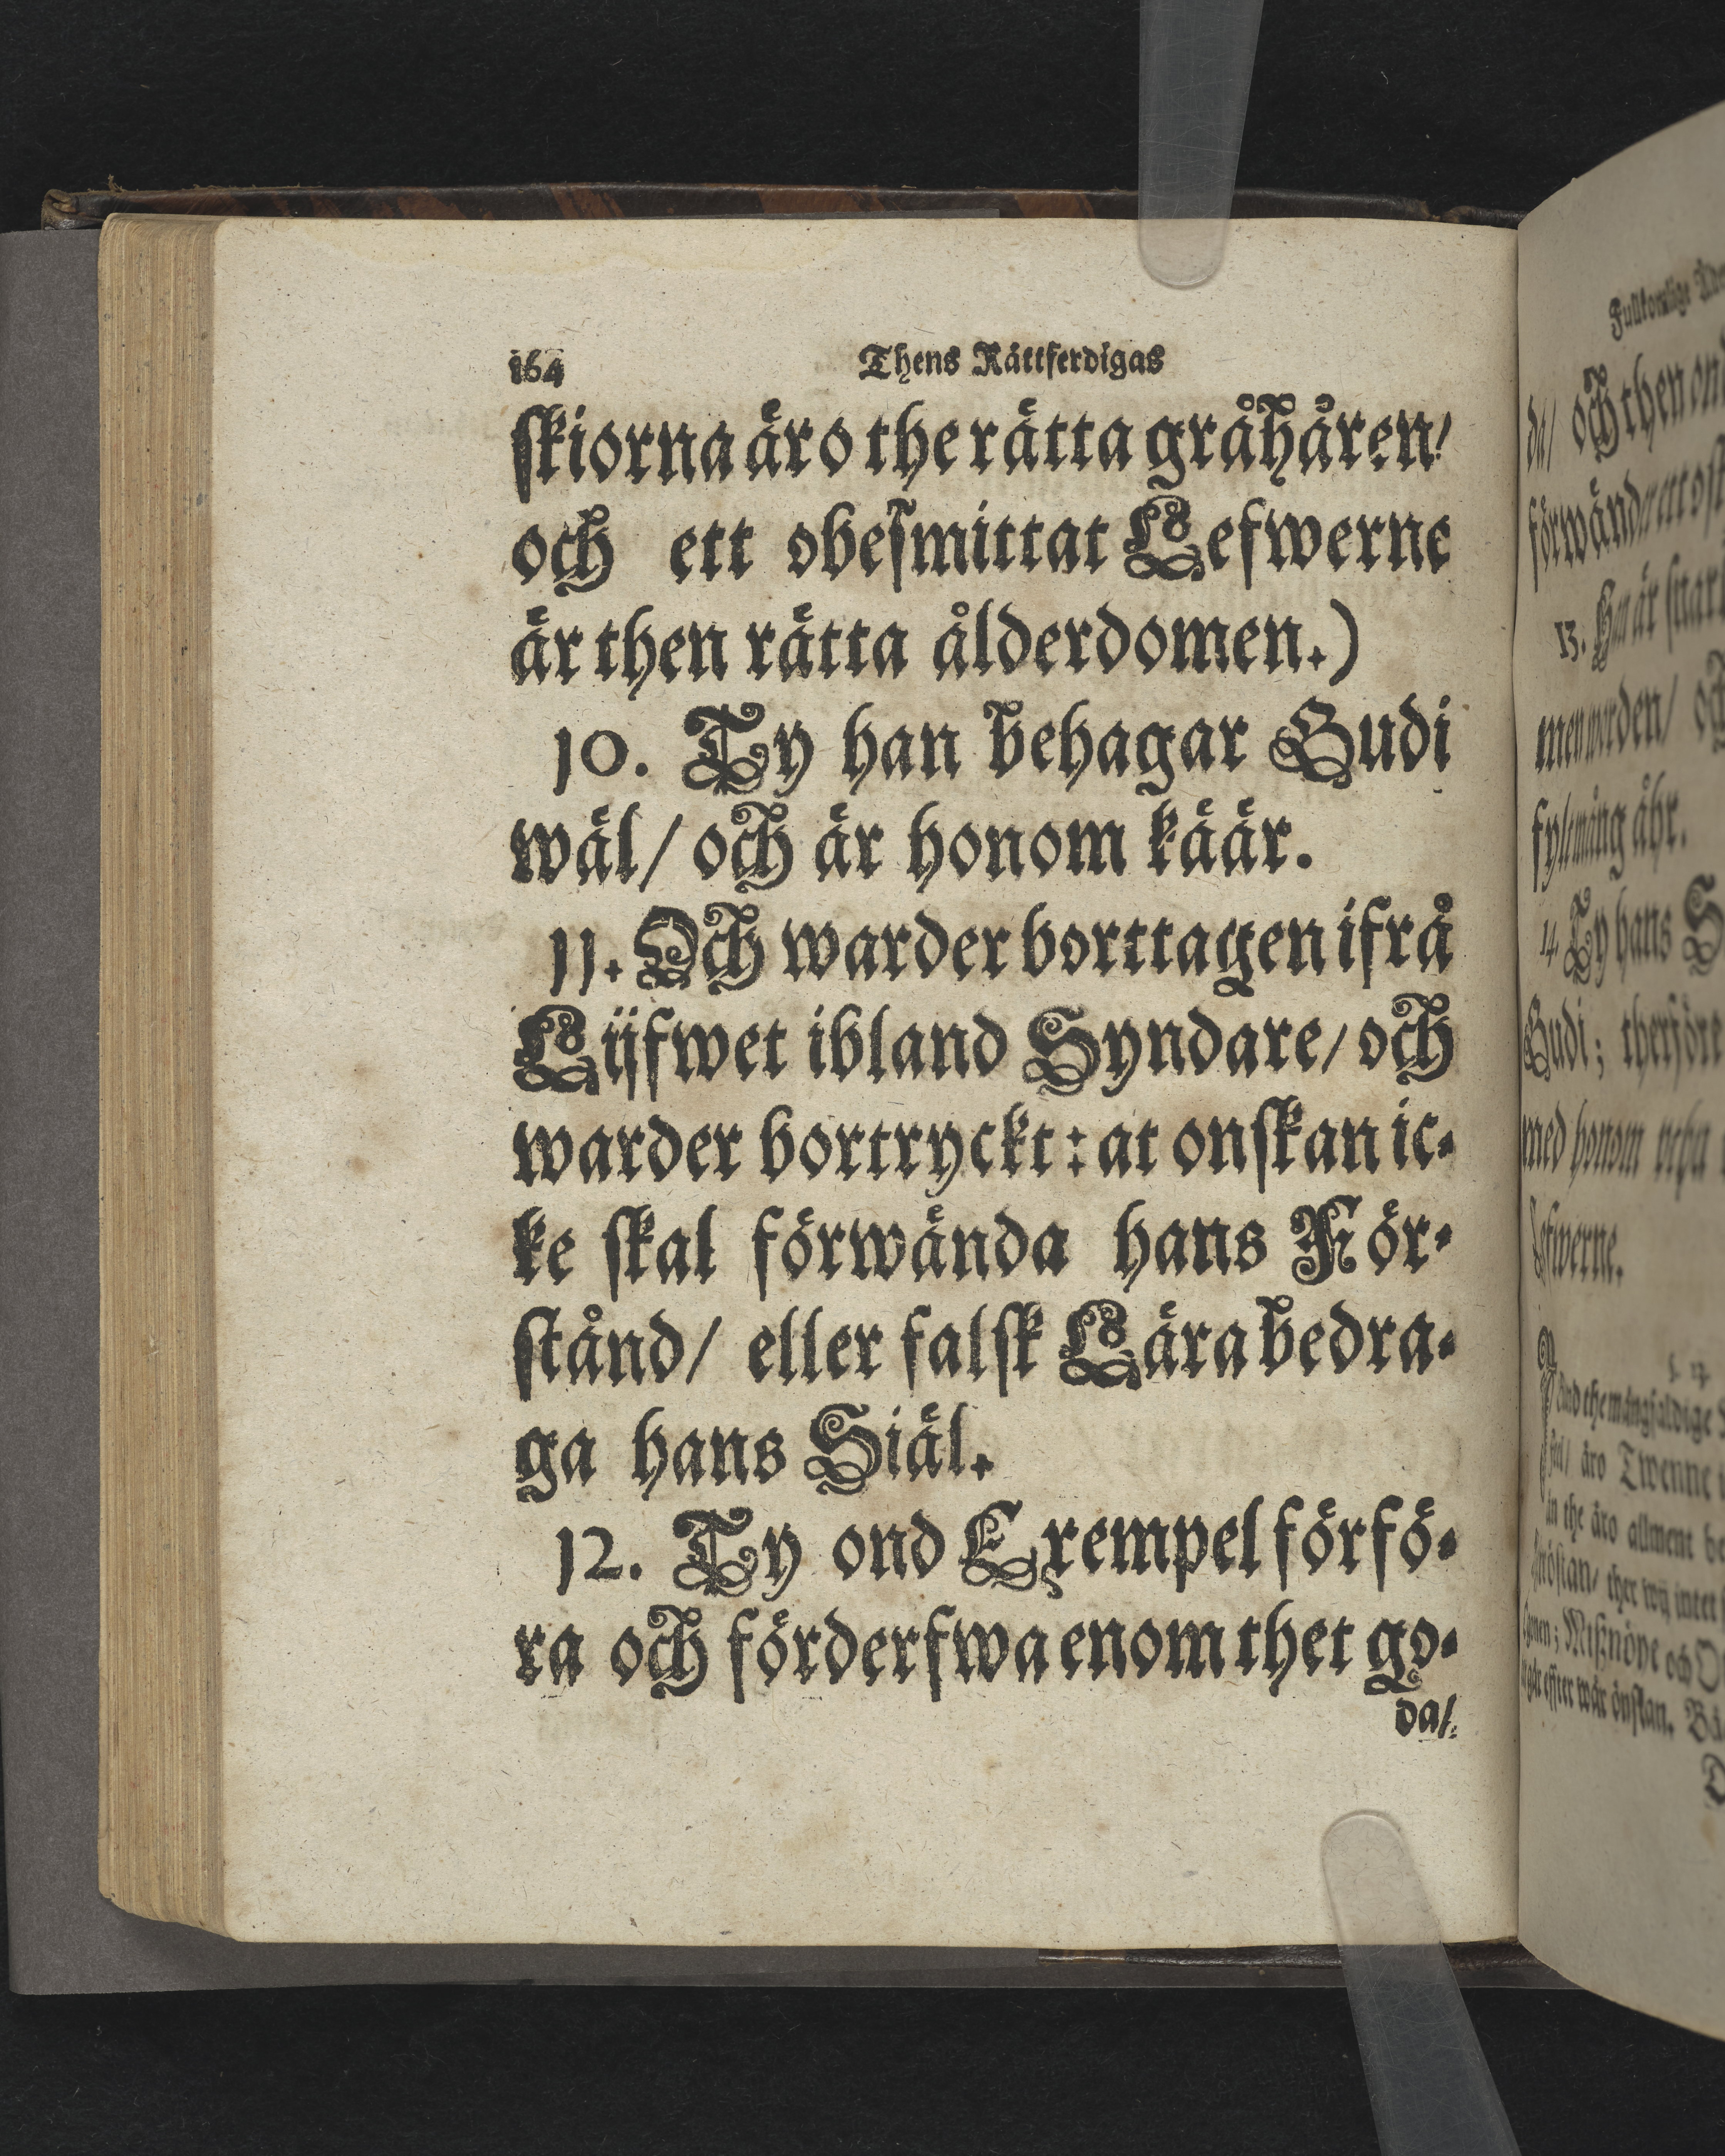 164 Thens Rättferdigas
skiorna äro the rätta gråhåren/
och ett obesmittat Lefwerne
är then rätta ålderdomen.)
10. Ty han behagar Gudi
wäl/ och är honom käär.
11. Och warder borttagen ifrå
Lijfwet ibland Syndare/ och
warder bortryckt: at onskan ic-
ke skal förwända hans För-
stånd/ eller falsk Lära bedra-
ga hans Siäl.
12. Ty ond Exempel förfö-
ra och förderfwa enom thet go-
da/
Fullkomlige
da/ och then
förwänd
13. Han är snart
worden/
åhr.
14. Ty hans
Gudi; therföre
med honom
Lefwerne.
äro Twenne
the äro allment
ther wij intet
Mißnöye och
effter wår önskan.